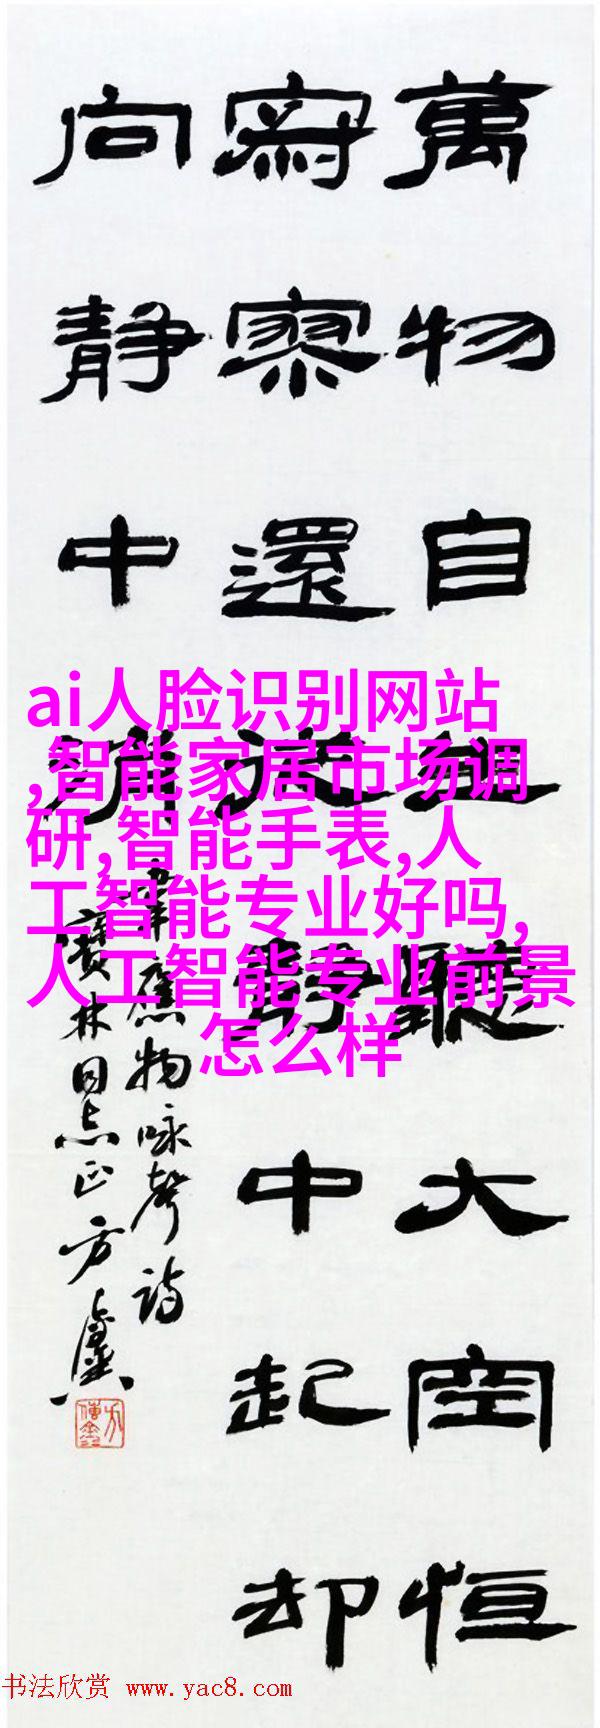 萬物自生聽大空恒
寂寥還從静中起却
向静中消
韋應物咏聲詩
寶林同志正方
ai人脸识别网站
,智能家居市场调
研,智能手表,人
工智能专业好吗,
人工智能专业前景
怎么样
书法欣赏 www.yac8.com